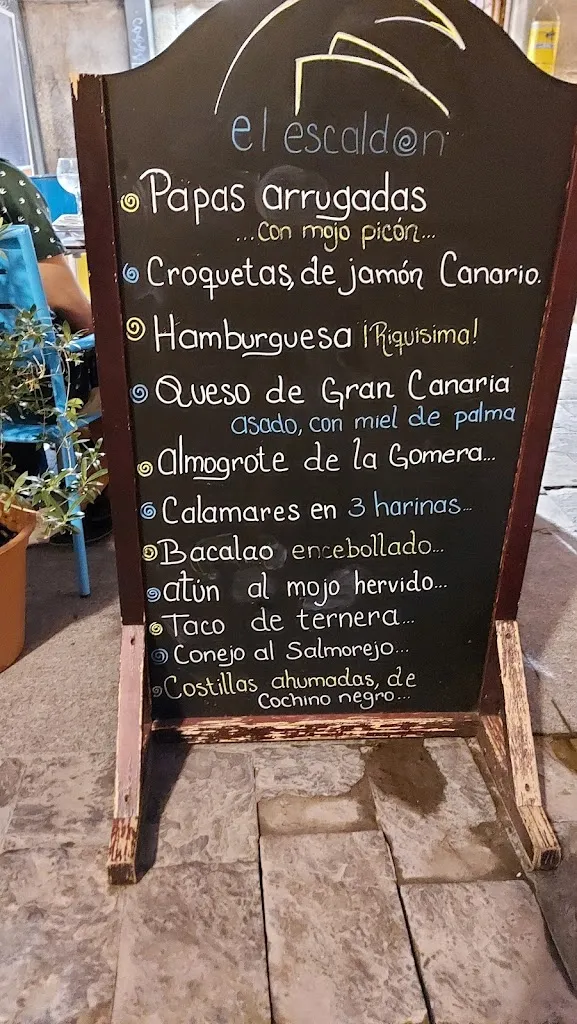 el escald@n
Papas arrugadas
...con mojo picón...
Croquetas, de jamón Canario.
Hamburguesa ¡Riquisima!
Queso de Gran Canaria
asado, con miel de palma
Almogrote de la Gomera...
Calamares en 3 harinas...
Bacalao encebollado...
atún al mojo hervido...
Taco de ternera...
Conejo al Salmorejo...
Costillas ahumadas, de
Cochino negro...